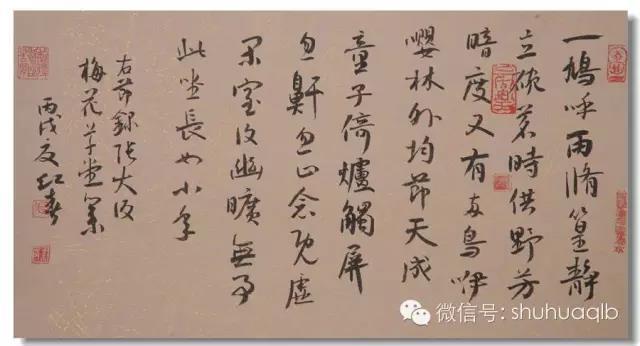 一鳩呼雨脩篁靜
立碗茗時供野芳
暗度又有兩鳥咿
嚶林外均節天成
童子倚爐觸屏
忽鼾忽止念既虛
閑室復幽曠無事
此坐長如小年
右節錄張大復
梅花草堂筆
丙戌夏
微信号: shuhuaqlb